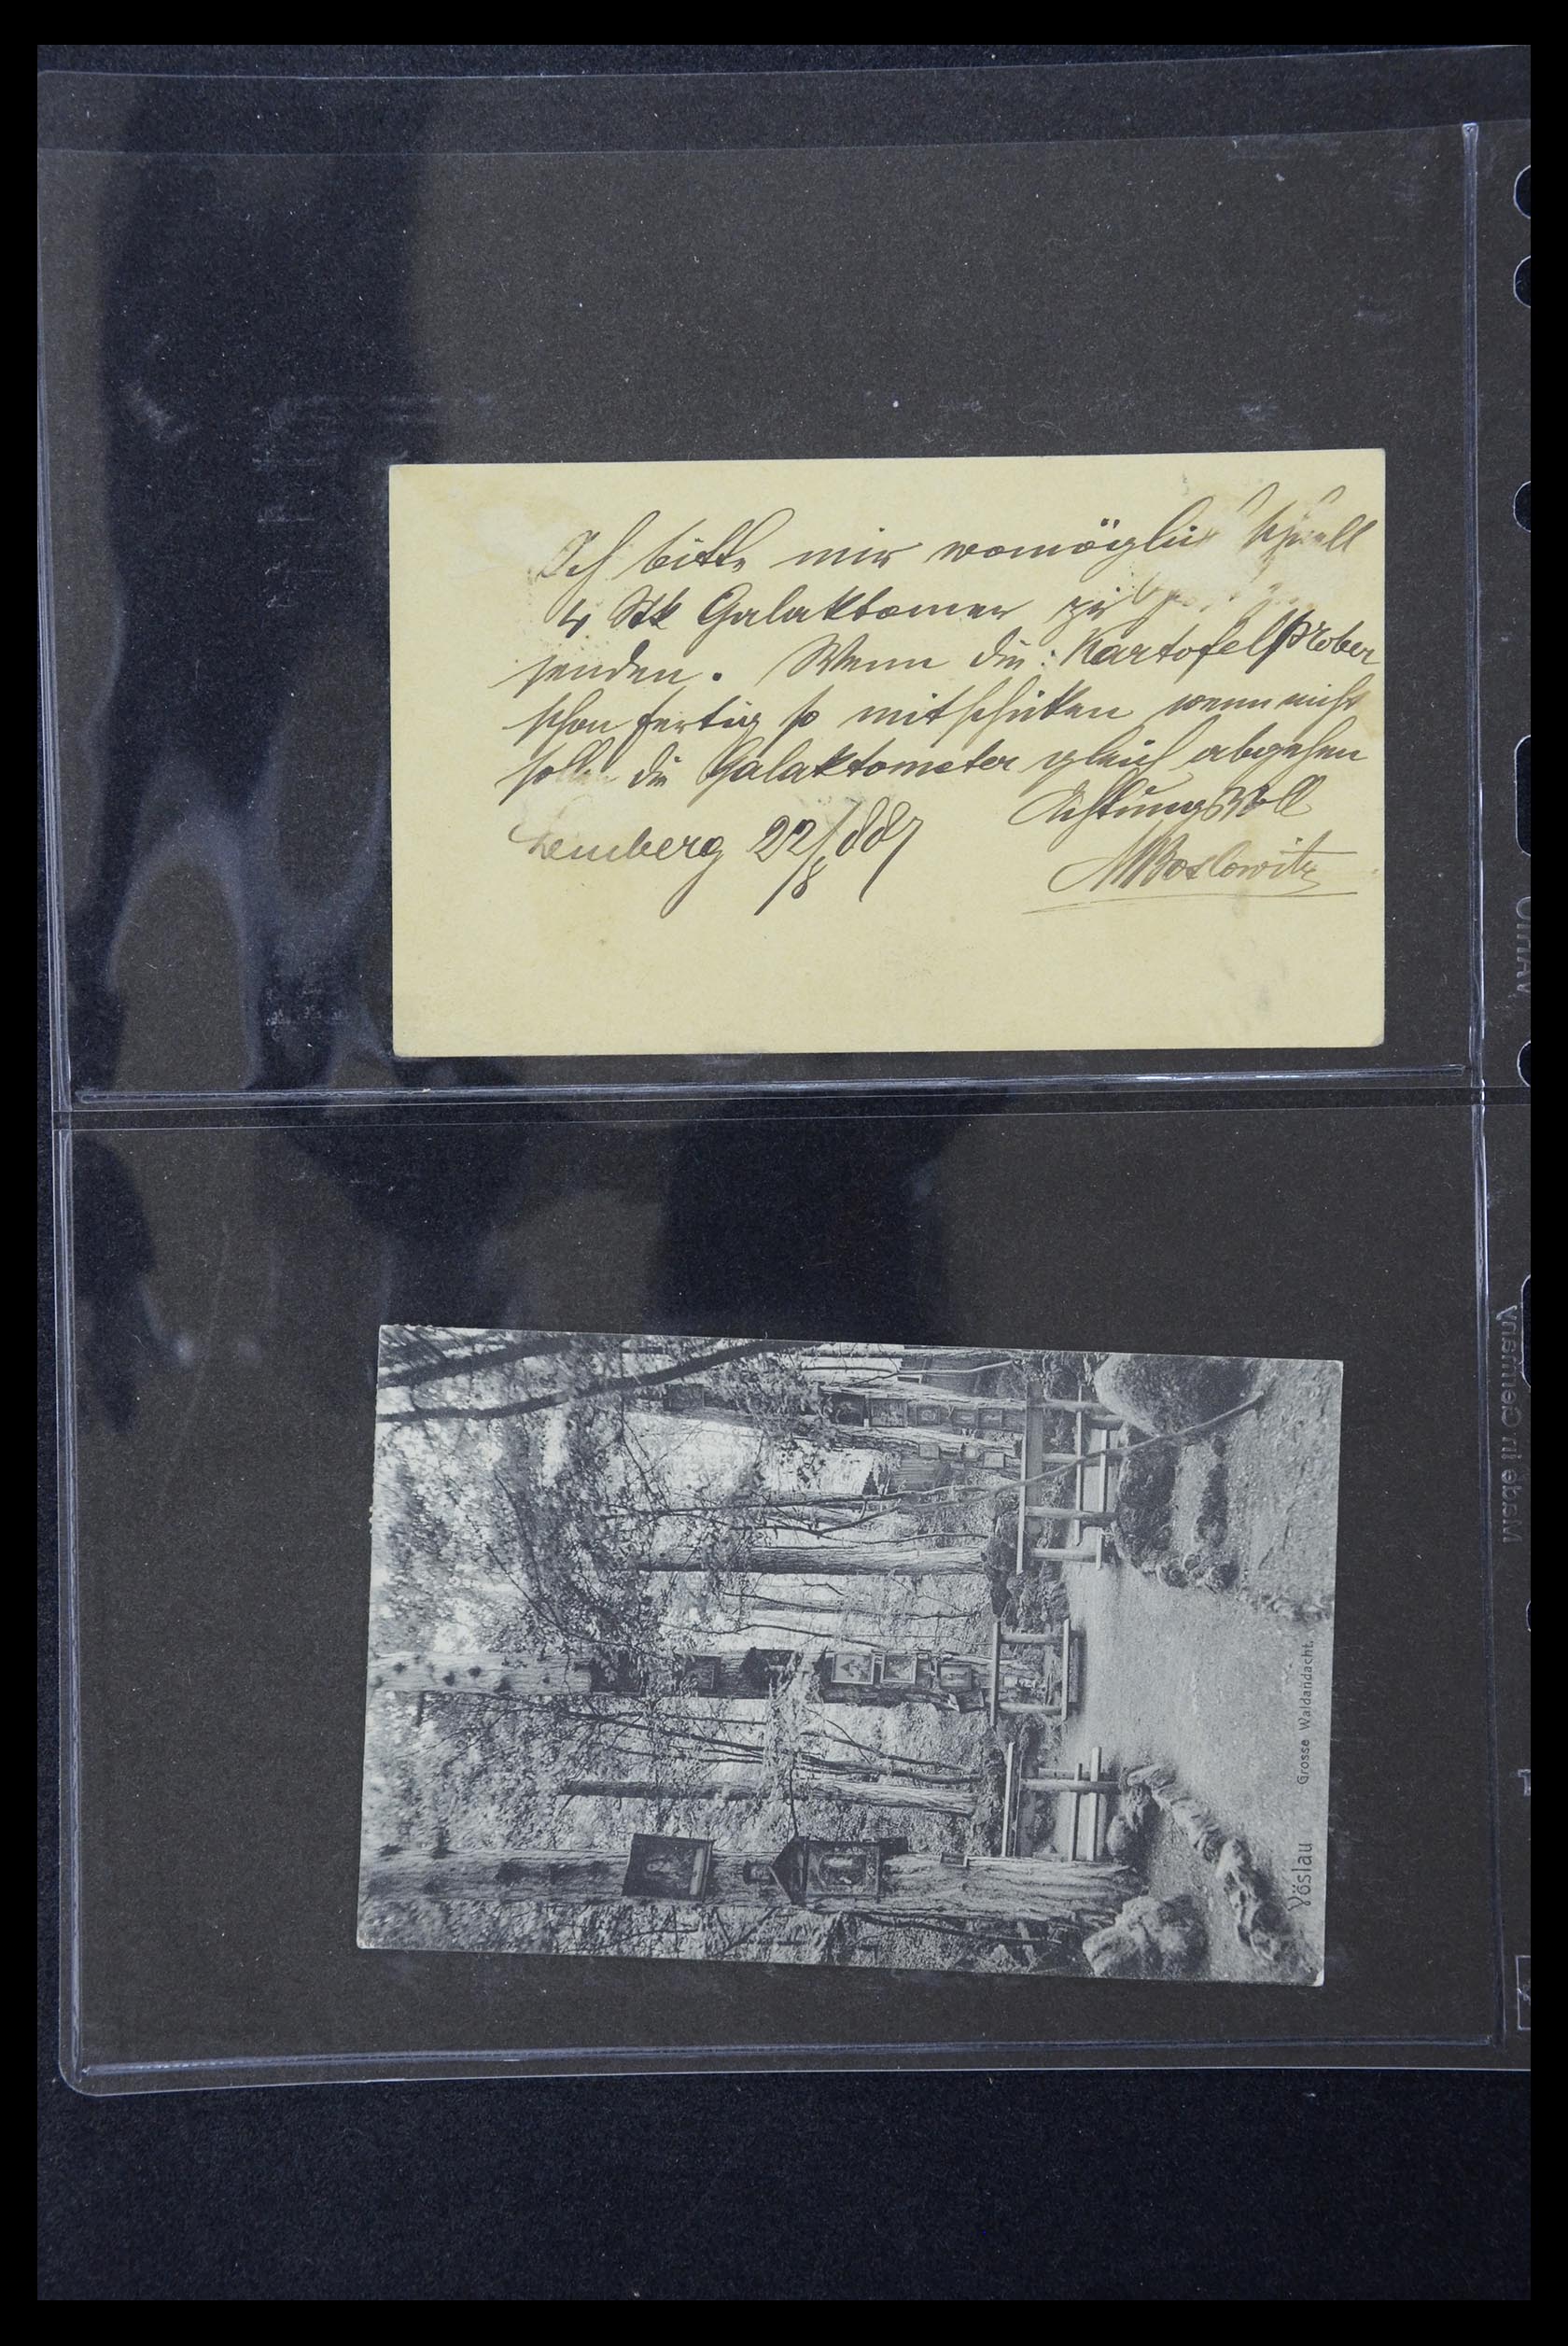 Ich bitte mir womöglich schnell
4 Stk Galaktomer zu
senden. Wenn die: Kartofelprober
schon fertig so mitschicken wenn nicht
sollen die Galaktometer gleich abgehen
Achtungsvoll
Lemberg 22/8 887
Vöslau Grosse Waldandacht.
Made in Germany